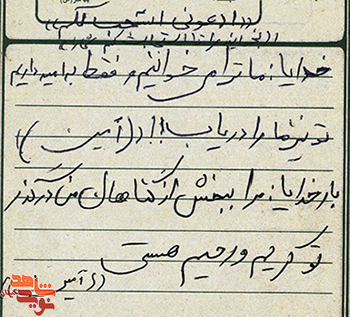 ((ادعونی استجب لکم))
خدایا: ما ترا می خوانیم و فقط به تو امید داریم
تو نیز ما را دریاب!!! ((آمین))
بار خدایا: مرا ببخش از گناهان من درگذر
تو کریم و رحیم هستی
((آمین))
نوید شاهد